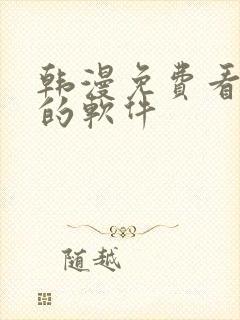 韩漫免费看
的软件
随越